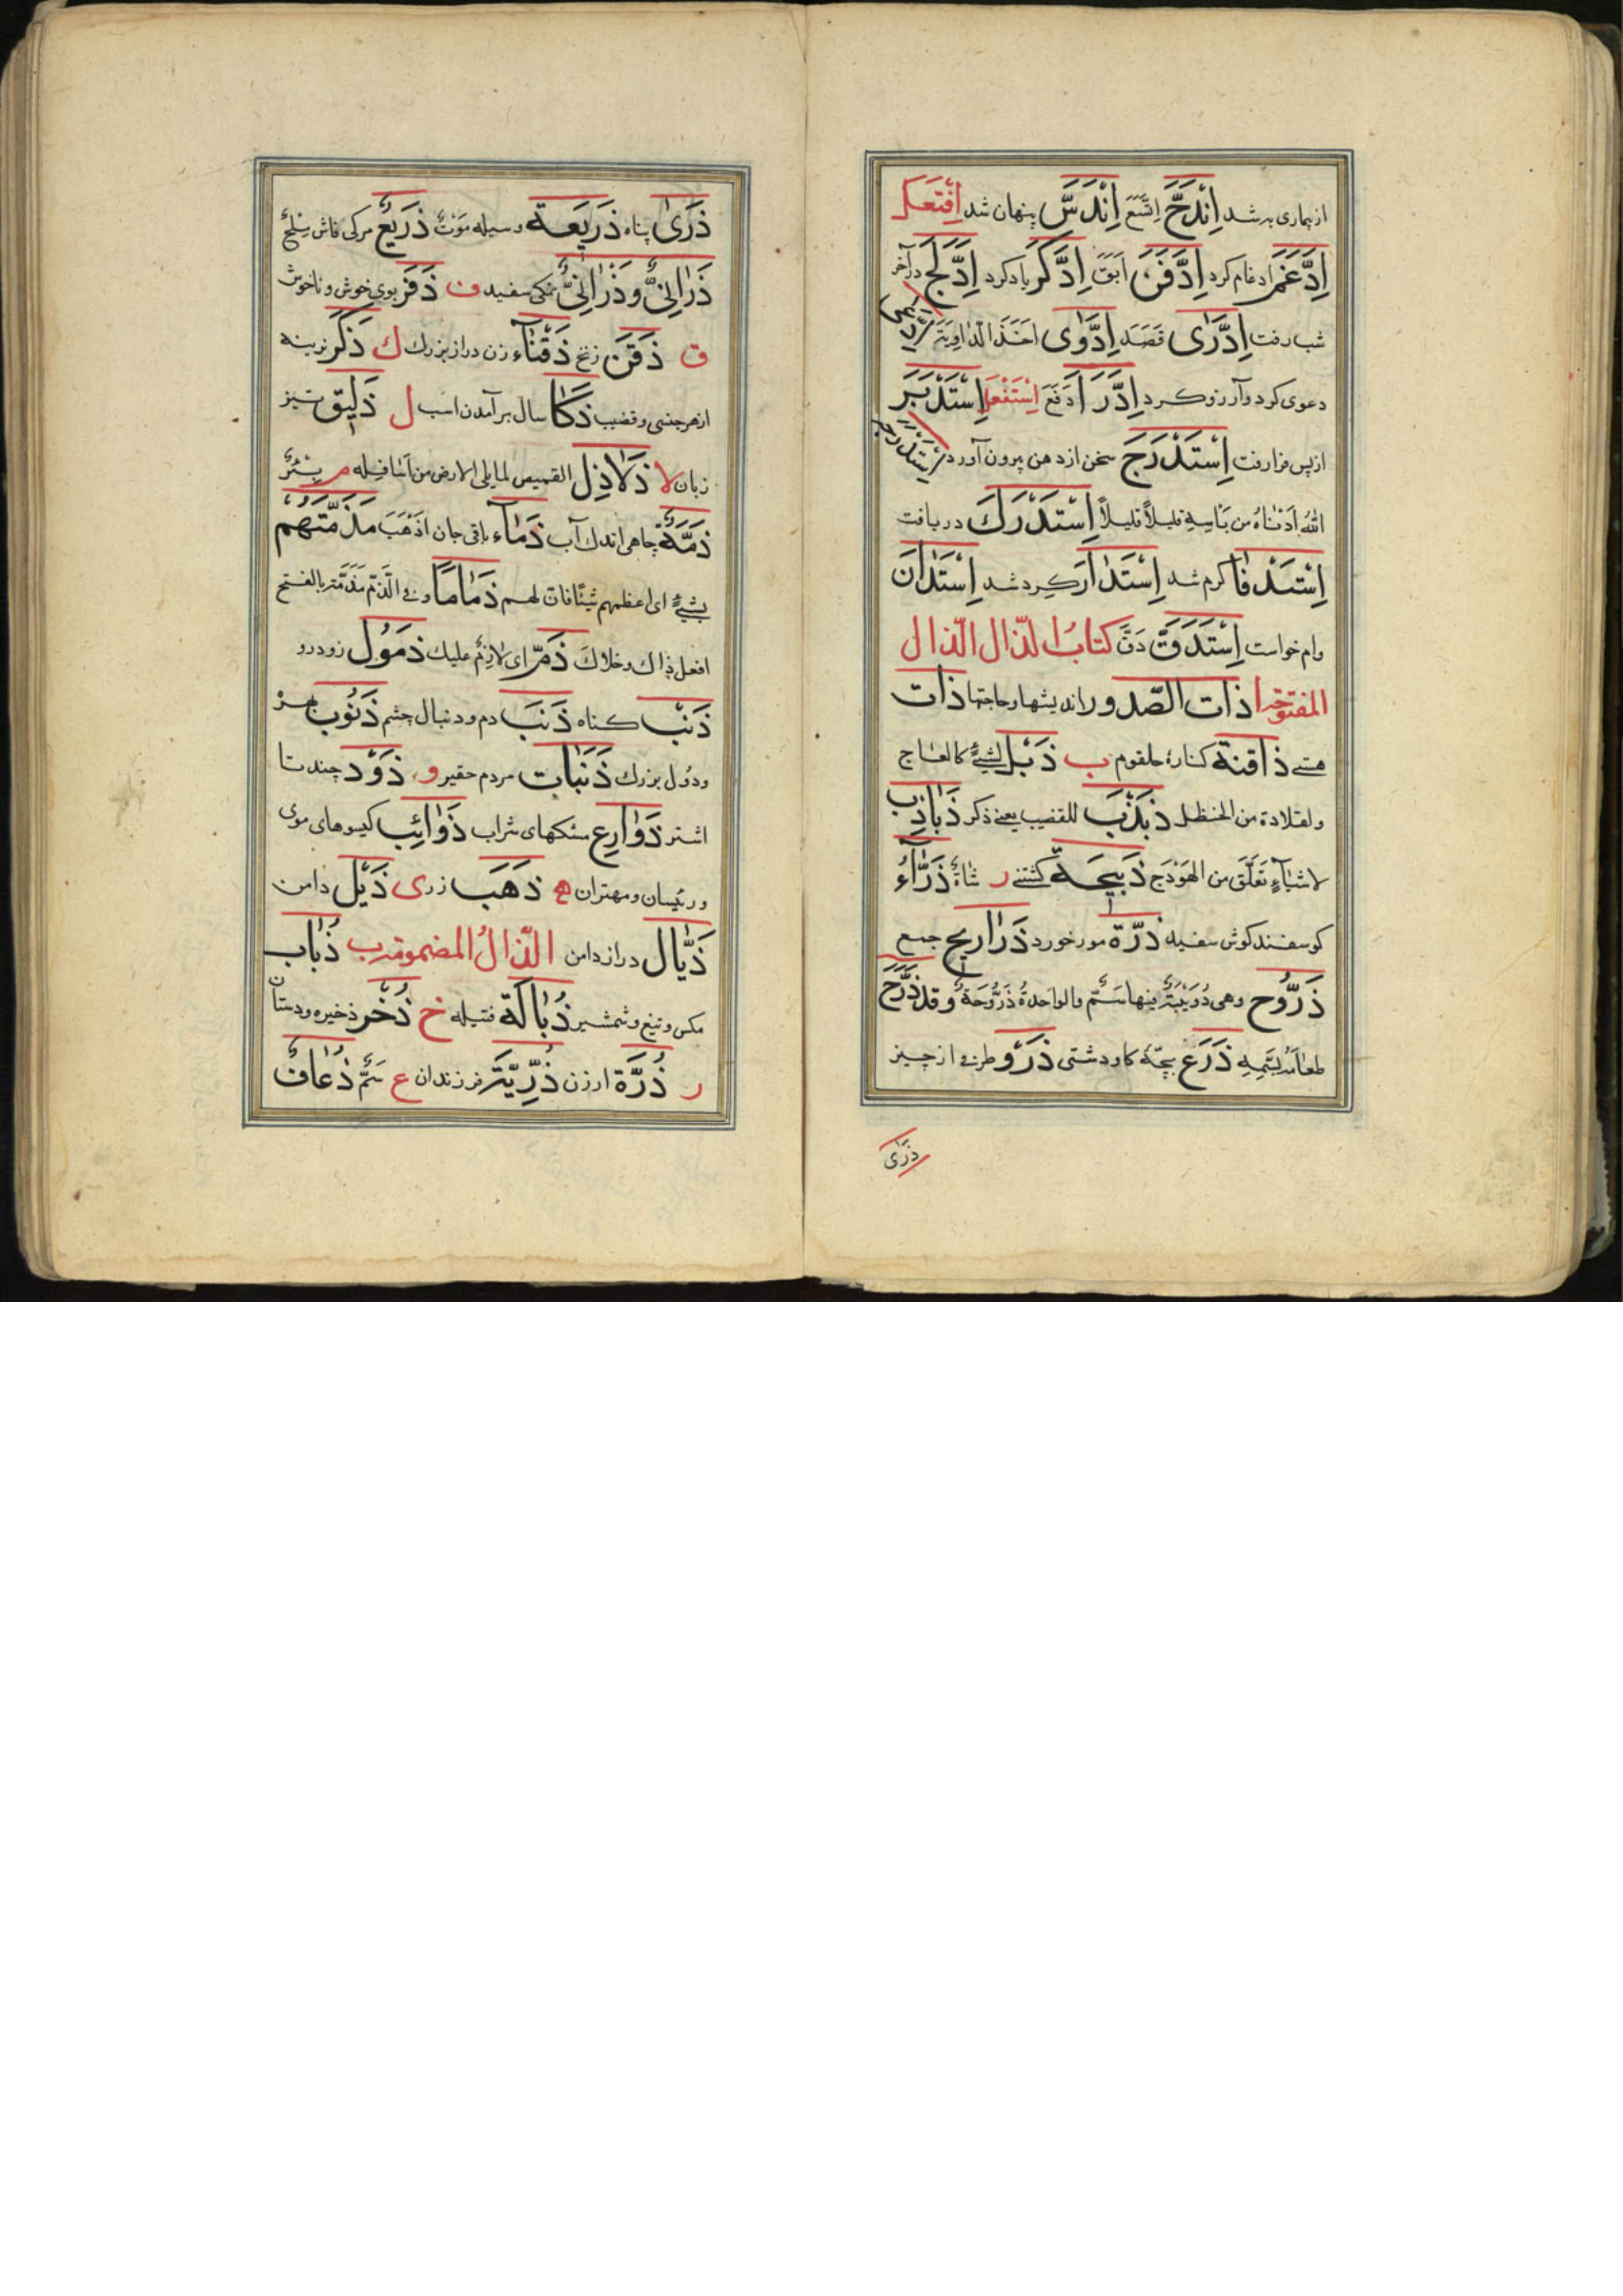 از بیماری به شد اِنْدَحَّ اِتَّسَعَ اِنْدَسَّ پنهان شد اِفْتَعَلَ
اِدَّغَمَ ادغام کرد اِدَّفَنَ اَبَقَ اِدَّکَرَ یاد کرد اِدَّلَجَ در آخر
شب رفت اِدَّرٰی قَصَدَ اِدَّوٰی اَخَذَ الدّاوِیَةَ اِدَّعٰی
دعوی کرد و آرزو کرد اِدَّرَأَ دَفَعَ اِسْتَفْعَلَ اِسْتَدْبَرَ
از پس فرا رفت اِسْتَدْرَجَ سخن از دهن بیرون آورد اِسْتَدْرَجَهُ
اللّٰهُ اَدْنٰاهُ من بَأسِهِ قلیلاً قلیلاً اِسْتَدْرَكَ دریافت
اِسْتَدْفَأَ گرم شد اِسْتَدٰارَ گرد شد اِسْتَدٰانَ
وام خواست اِسْتَدَقَّ دَقَّ کتابُ الذّال الذّال
المفتوحة ا ذات الصّدور اندیشها و حاجتها ذات
هستی ذاقنة کناره حلقوم ب ذَبْل لشیءٍ کالعاج
ولقلادة من الحنظل ذَبْذَب للقضیب یعنی ذکر ذَبٰاذِب
لاشیآءٍ تَعَلَّقَ من الهَوْدَج ذَبیحَة کشتنی ر شٰاةٌ ذَرْآءُ
گوسفند گوش سفید ذَرَّة مور خورد ذَرٰاریح جمع
ذَرُّوح وهی دُوَیْبَةٌ بِهٰا سَمٌّ والواحدةُ ذَرُّوحَةٌ وقد ذَرَّحَ
طعٰامَهُ بِسَمِّهِ ذَرَع بچّهٔ گاو دشتی ذَرْو طرفی از چیز
ذرٰی
ذَرٰی پناه ذَریعَة وسیله مَوْتٌ ذَریعٌ مرکی فاش مِلْحٌ
ذَرْاٰنِیٌّ وذَرَاٰنِیٌّ نمکی سفید ف ذَفَر بوی خوش و ناخوش
ق ذَقَن زنخ ذَقْنٰاء زن دراز بزرك ك ذَکَر نرینه
از هر جنسی و قضیب ذَکٰا سال برآمدن اسب ل ذَلیق تیز
زبان لا ذَلاٰذِل القمیص لما یلی الارض من اَسٰافِلِه م بِئْرٌ
ذَمَّةٌ چاهی اندك آب ذَمٰاء باقی جان اَذْهَبَ مَذَمَّتَهُم
بِشَیْءٍ ای اعظمهم شیئًا فان لهم ذَمٰامًا وفی الذّم مَذَمَّة بالفتح
افعل ذاك و خلاكَ ذَمّ ای لازِمٌ علیك ذَمُول زودرو
ذَنْب گناه ذَنَب دم و دنبال چشم ذَنُوب بهر
و دول بزرك ذَنَبٰات مردم حقیر و ذَوْد چند تا
اشتر ذَوٰارِع مشکهای شراب ذَوٰائِب کیسوهای موی
و رئیسان و مهتران ه ذَهَب زر ی ذَیْل دامن
ذَیّٰال دراز دامن الذّالُ المضمومة ب ذُبٰاب
مکس و تیغ و شمشیر ذُبٰالَة فتیله خ ذُخْر ذخیره و دستان
ر ذُرَة ارزن ذُرِّیَّة فرزندان ع سَمٌّ ذُعٰاف